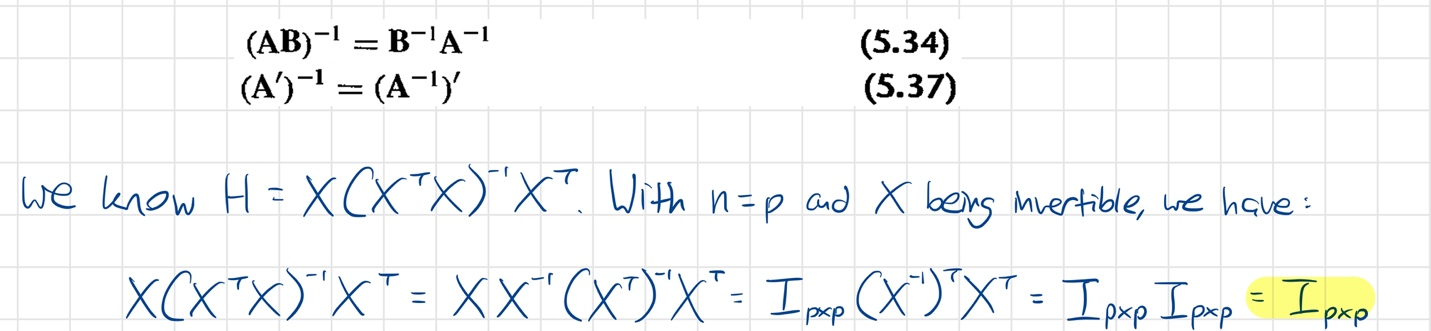 (AB)⁻¹ = B⁻¹A⁻¹ (5.34)
(A′)⁻¹ = (A⁻¹)′ (5.37)
We know H = X(XᵀX)⁻¹Xᵀ. With n=p and X being invertible, we have:
X(XᵀX)⁻¹Xᵀ = XX⁻¹(Xᵀ)⁻¹Xᵀ = Iₚₓₚ(X⁻¹)ᵀXᵀ = Iₚₓₚ Iₚₓₚ = Iₚₓₚ